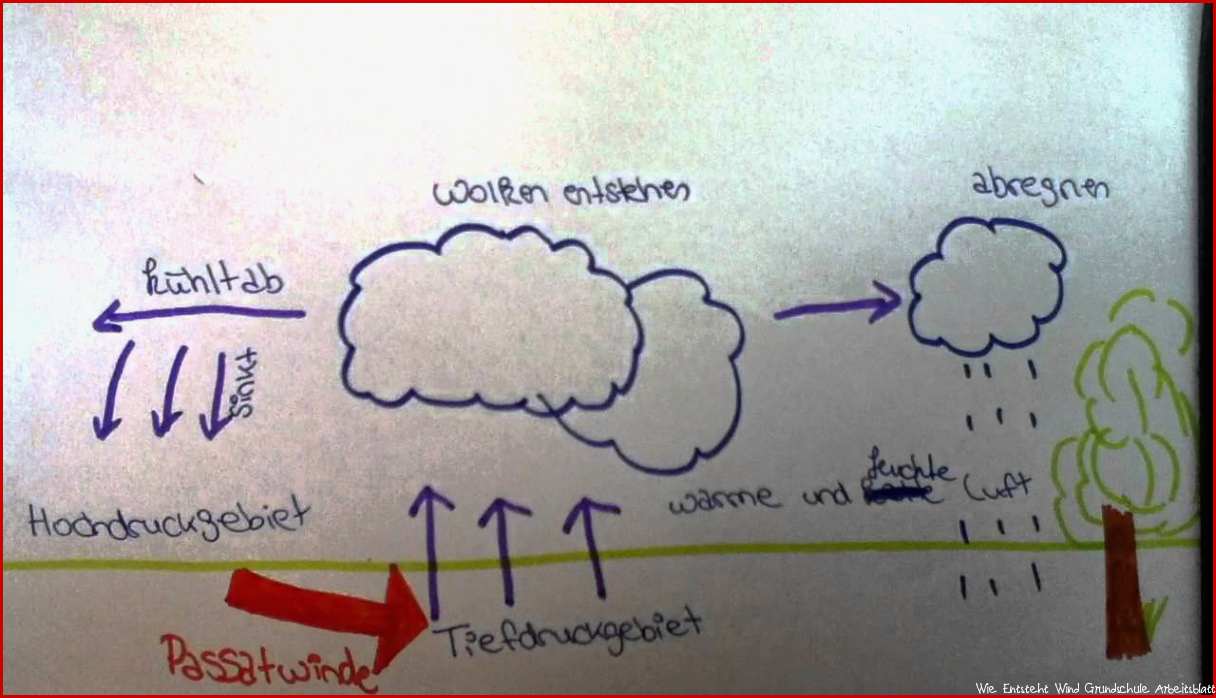 Wolken entstehen
abregnen
kühlt ab
sinkt
feuchte
warme und luft
Hochdruckgebiet
Tiefdruckgebiet
Passatwinde
Wie Entsteht Wind Grundschule Arbeitsblatt